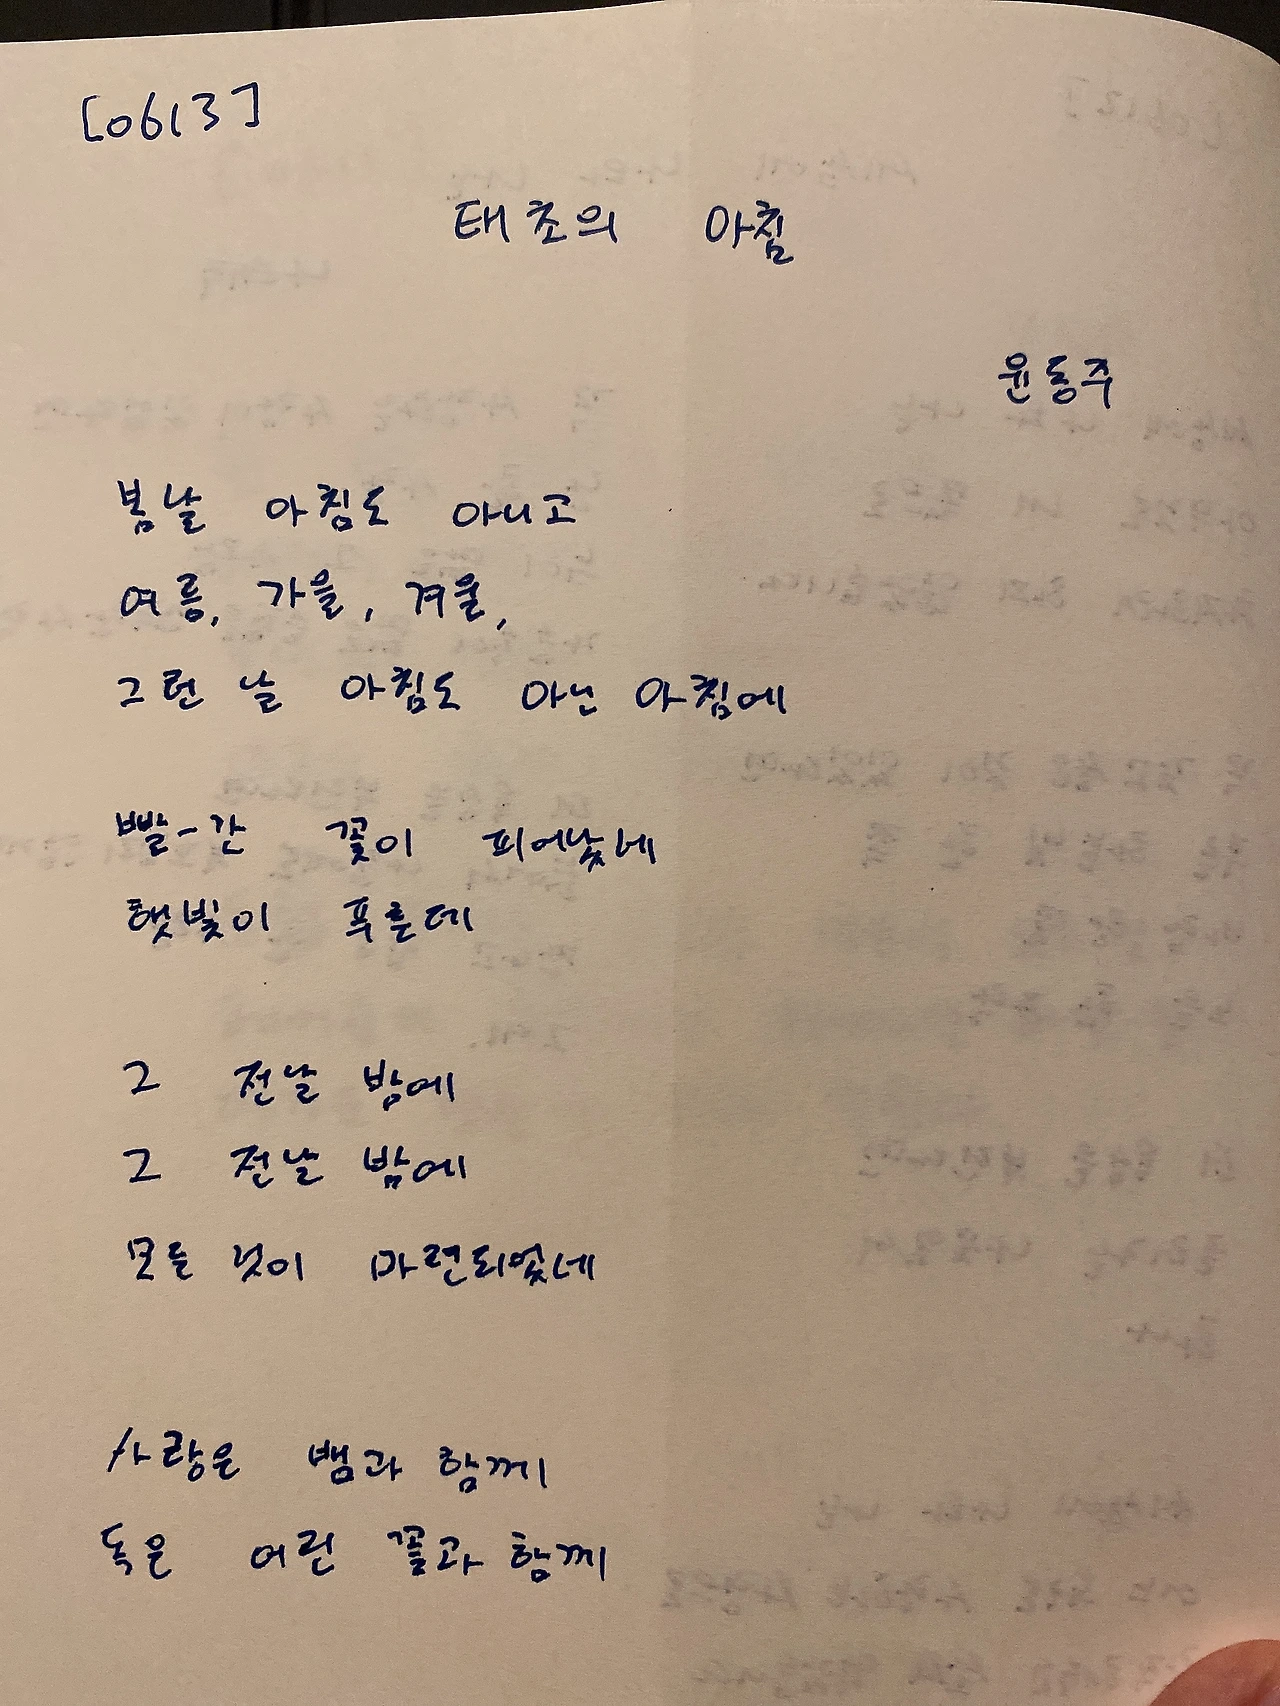 [0613]
태초의 아침
윤동주
봄날 아침도 아니고
여름, 가을, 겨울,
그런 날 아침도 아닌 아침에
빨-간 꽃이 피어났네
햇빛이 푸른데
그 전날 밤에
그 전날 밤에
모든 것이 마련되었네
사랑은 뱀과 함께
독은 어린 꽃과 함께